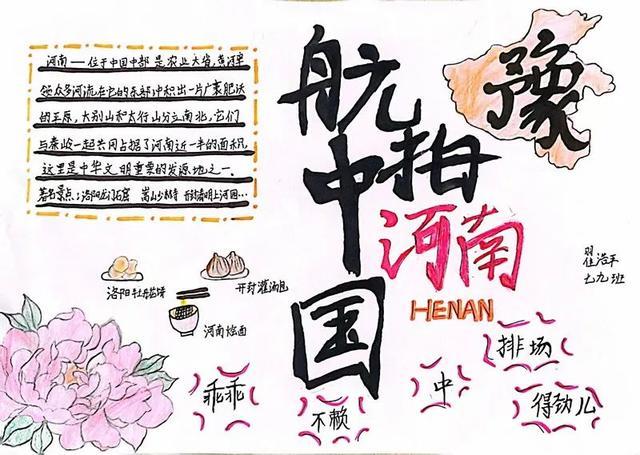 河南——位于中国中部 是农业大省,黄河率
领众多河流在它的东部冲积出一片广袤肥沃
的平原,大别山和太行山分立南北,它们
与秦岭一起共同占据了河南近一半的面积,
这里是中华文明重要的发源地之一。
著名景点:洛阳龙门石窟 嵩山少林寺 开封清明上河园…
航拍
中国
河南
HENAN
豫
七九班
洛阳牡丹花饼
开封灌汤包
河南烩面
乖乖
不赖
中
排场
得劲儿